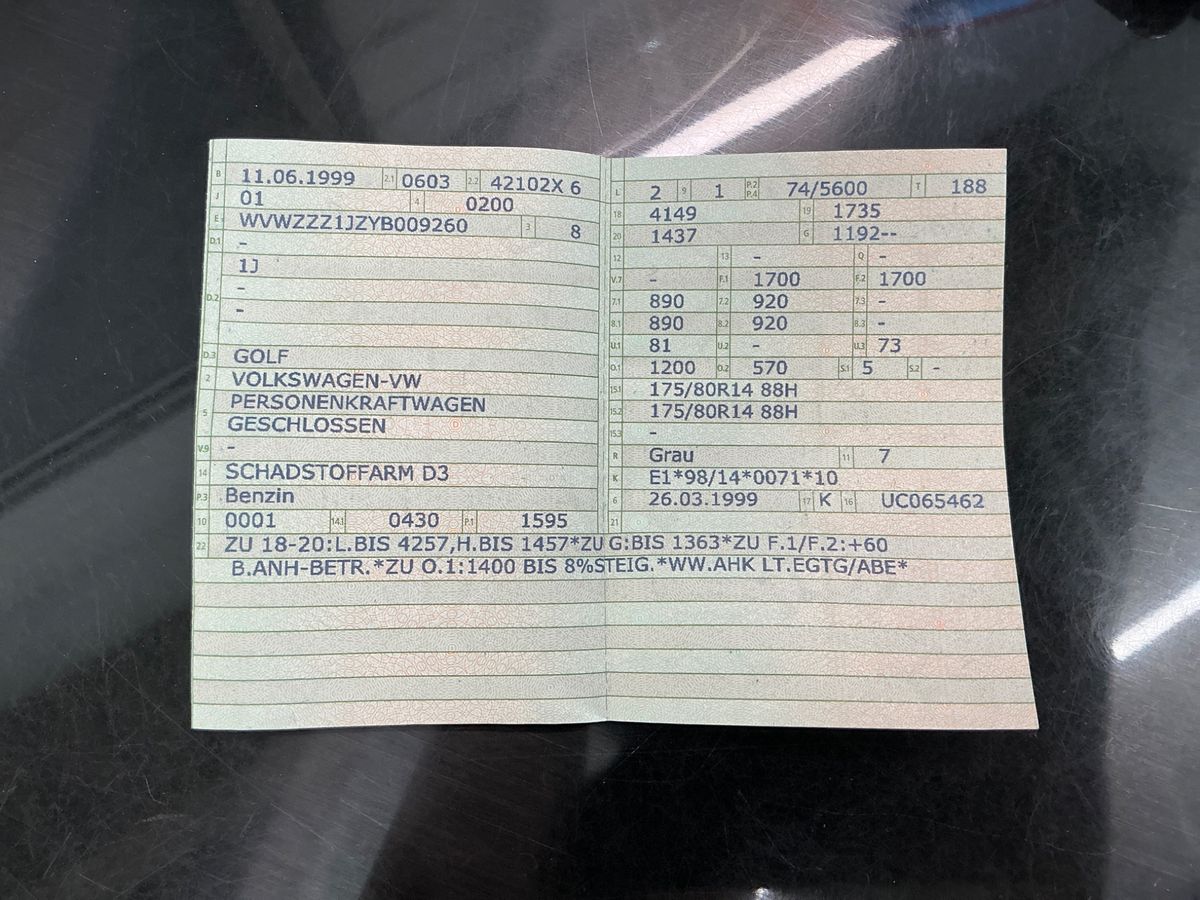 B 11.06.1999 2.1 0603 2.2 42102X 6
J 01 4 0200
E WVWZZZ1JZYB009260 3 8
D.1 -
1J
D.2 -
-
D.3 GOLF
2 VOLKSWAGEN-VW
5 PERSONENKRAFTWAGEN
GESCHLOSSEN
V.9 -
14 SCHADSTOFFARM D3
P.3 Benzin
10 0001 14.1 0430 P.1 1595
L 2 9 1 P.2 P.4 74/5600 T 188
18 4149 19 1735
20 1437 G 1192--
12 13 - Q -
V.7 - F.1 1700 F.2 1700
7.1 890 7.2 920 7.3 -
8.1 890 8.2 920 8.3 -
U.1 81 U.2 - U.3 73
O.1 1200 O.2 570 S.1 5 S.2 -
15.1 175/80R14 88H
15.2 175/80R14 88H
15.3 -
R Grau 11 7
K E1*98/14*0071*10
6 26.03.1999 17 K 16 UC065462
21
22 ZU 18-20:L.BIS 4257,H.BIS 1457*ZU G:BIS 1363*ZU F.1/F.2:+60
B.ANH-BETR.*ZU O.1:1400 BIS 8%STEIG.*WW.AHK LT.EGTG/ABE*